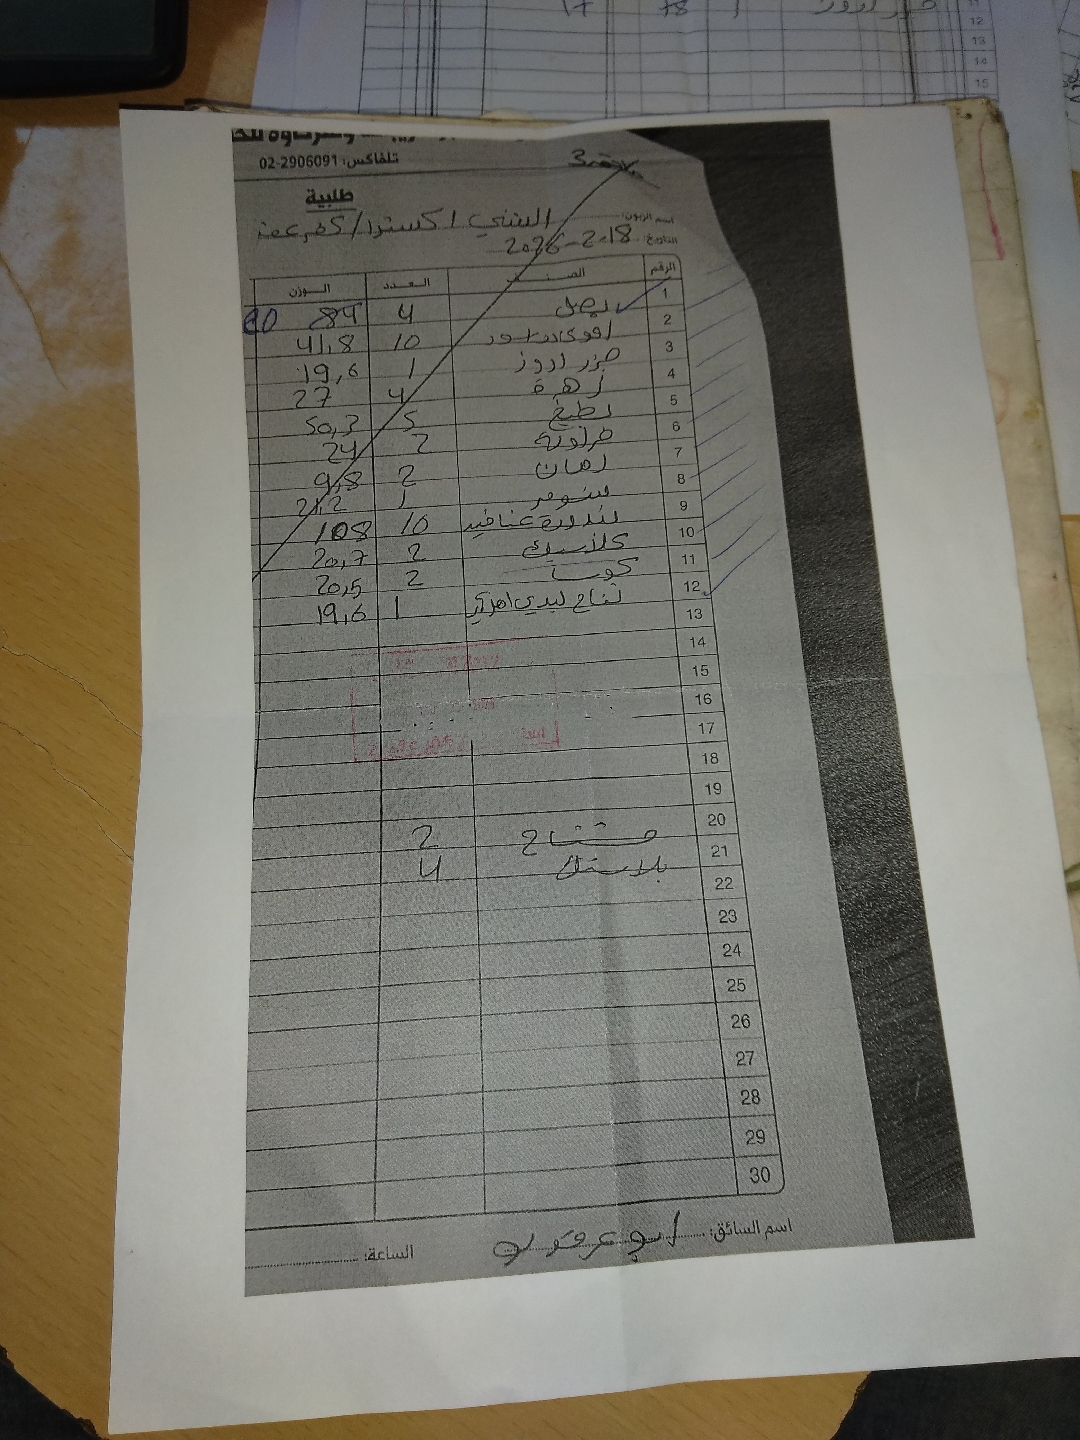 تلفاكس: 02-2906091
طلبية
اسم الزبون: السني اكسترا / كفر عقب
التاريخ: 18-2-2026
الرقم الصنف العدد الوزن
1 بصل 4 84 80
2 افوكادو 10 41,8
3 جزر اروز 1 19,6
4 زهرة 4 27
5 بطيخ 5 50,3
6 فراولة 2 24
7 رمان 2 9,8
8 شومر 1 21,2
9 بندورة عناقيد 10 108
10 كلاسيك 2 20,7
11 كوسا 2 20,5
12 تفاح ليدي 1 19,6
13
14
15
16
17
18
19
20
21 مشتاح 2
22 بلاستك 4
23
24
25
26
27
28
29
30
اسم السائق: ابو عرقوب الساعة: